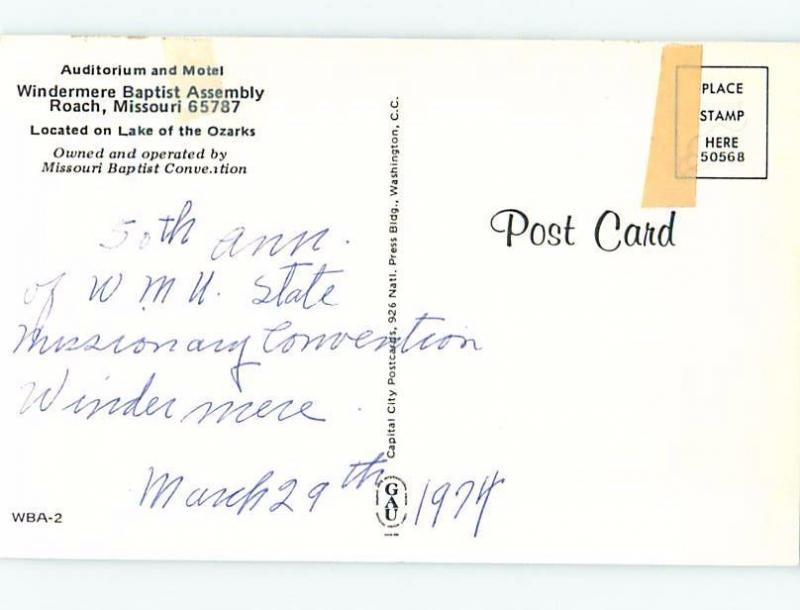 Auditorium and Motel
Windermere Baptist Assembly
Roach, Missouri 65787
Located on Lake of the Ozarks
Owned and operated by
Missouri Baptist Convention
50th ann.
of W M U. State
Missionary Convention
Windermere.
March 29th 1974
WBA-2
Capital City Postcards, 926 Natl. Press Bldg., Washington, C.C.
GAU
PLACE
STAMP
HERE
50568
Post Card